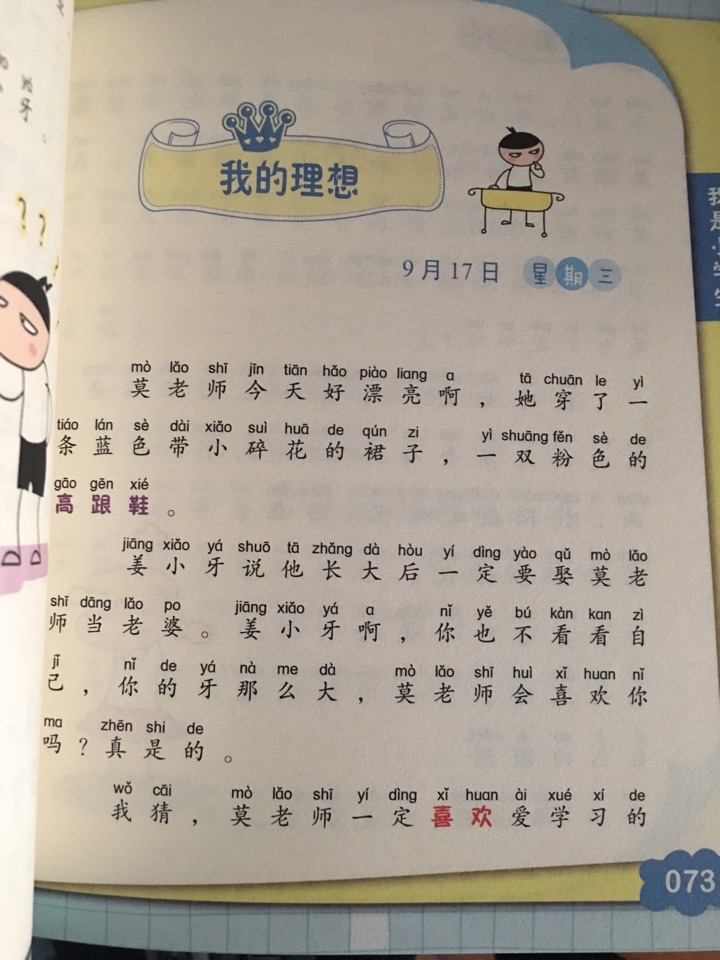 我的理想
9月17日 星期三
mò lǎo shī jīn tiān hǎo piào liang a tā chuān le yì
莫老师今天好漂亮啊，她穿了一
tiáo lán sè dài xiǎo suì huā de qún zi yì shuāng fěn sè de
条蓝色带小碎花的裙子，一双粉色的
gāo gēn xié
高跟鞋。
jiāng xiǎo yá shuō tā zhǎng dà hòu yí dìng yào qǔ mò lǎo
姜小牙说他长大后一定要娶莫老
shī dāng lǎo po jiāng xiǎo yá a nǐ yě bú kàn kan zì
师当老婆。姜小牙啊，你也不看看自
jǐ nǐ de yá nà me dà mò lǎo shī huì xǐ huan nǐ
己，你的牙那么大，莫老师会喜欢你
ma zhēn shi de
吗？真是的。
wǒ cāi mò lǎo shī yí dìng xǐ huan ài xué xí de
我猜，莫老师一定喜欢爱学习的
073
我是小学生